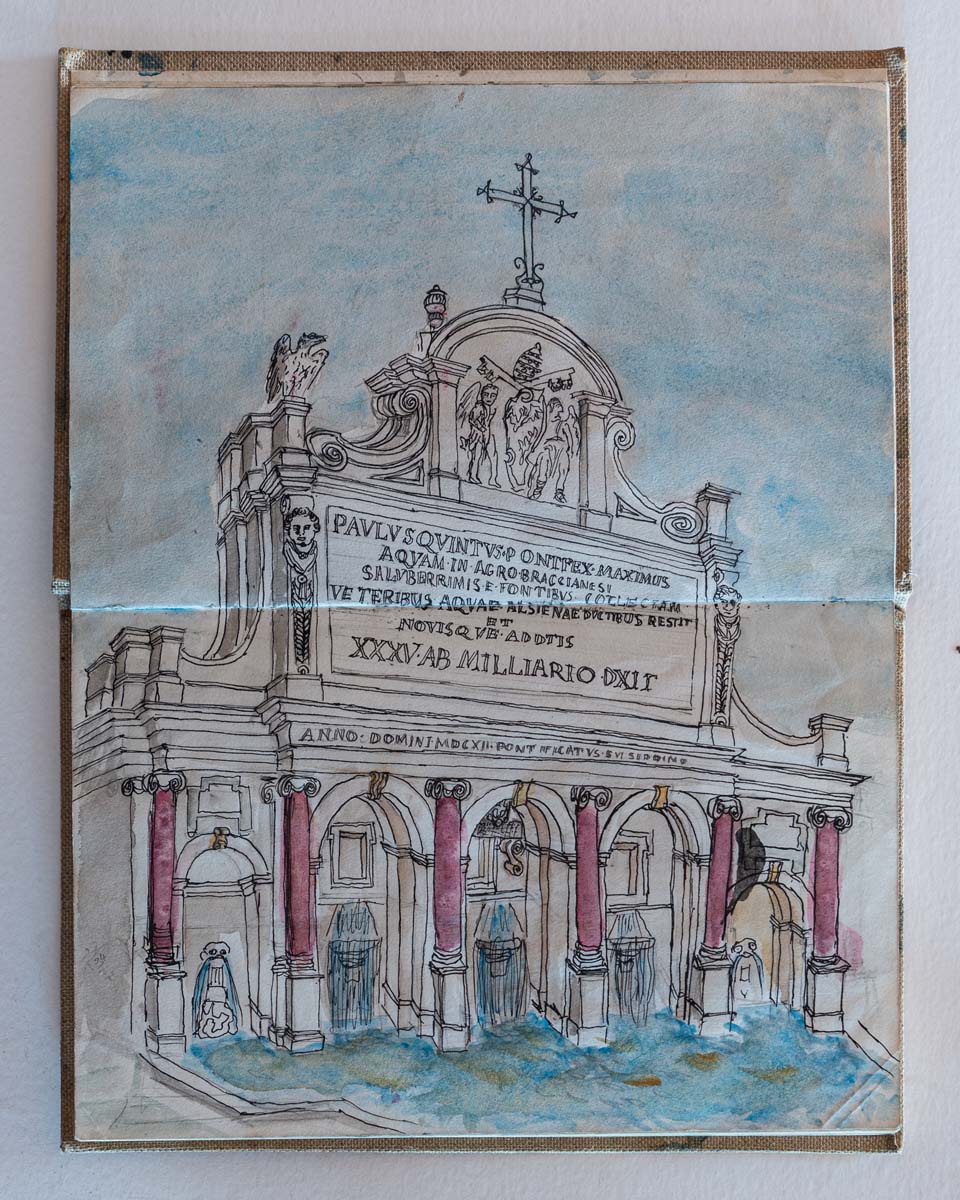 PAVLVS QVINTVS·PONTFEX·MAXIMUS
AQVAM·IN·AGRO·BRACCIANESI
SALVBERRIMIS·E·FONTIBVS·COLLECTAM
VETERIBUS AQVAE ALSIENAE DVCTIBUS RESTIT
ET
NOVISQVE·ADDTIS
XXXV·AB MILLIARIO·DXII
ANNO·DOMINI·MDCXII·PONTIFICATVS·SVI